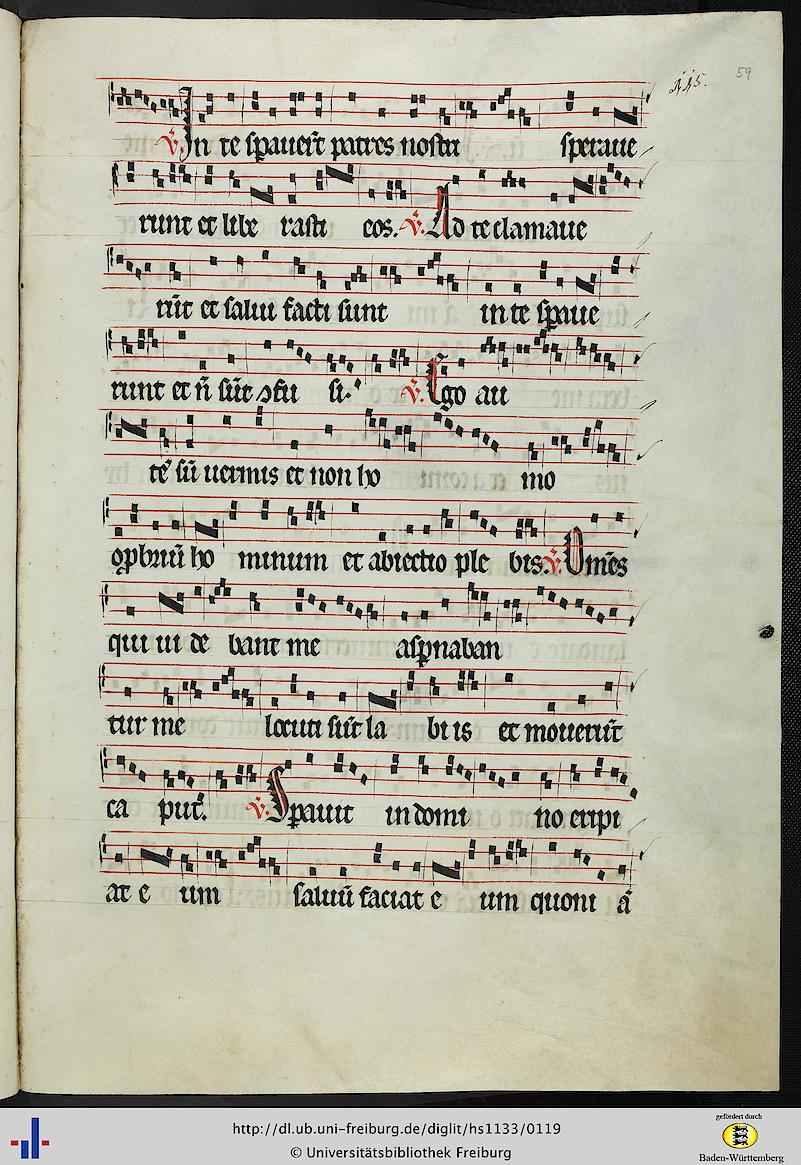 115.
59
V. In te spauer̄t patres nostri speraue
runt et libe rasti eos. V. Ad te clamaue
rūt et salui facti sunt in te spaue
runt et n̄ sūt ꝯfu si. V. Ego au
tē sū uermis et non ho mo
opbriū ho minum et abiectio ple bis. V. Omēs
qui ui de bant me aspnaban
tur me locuti sūt la bi is et mouerūt
ca put. V. Spauit in domi no eripi
at e um saluū faciat e um quoni ā
http://dl.ub.uni-freiburg.de/diglit/hs1133/0119
© Universitätsbibliothek Freiburg
gefördert durch
Baden-Württemberg